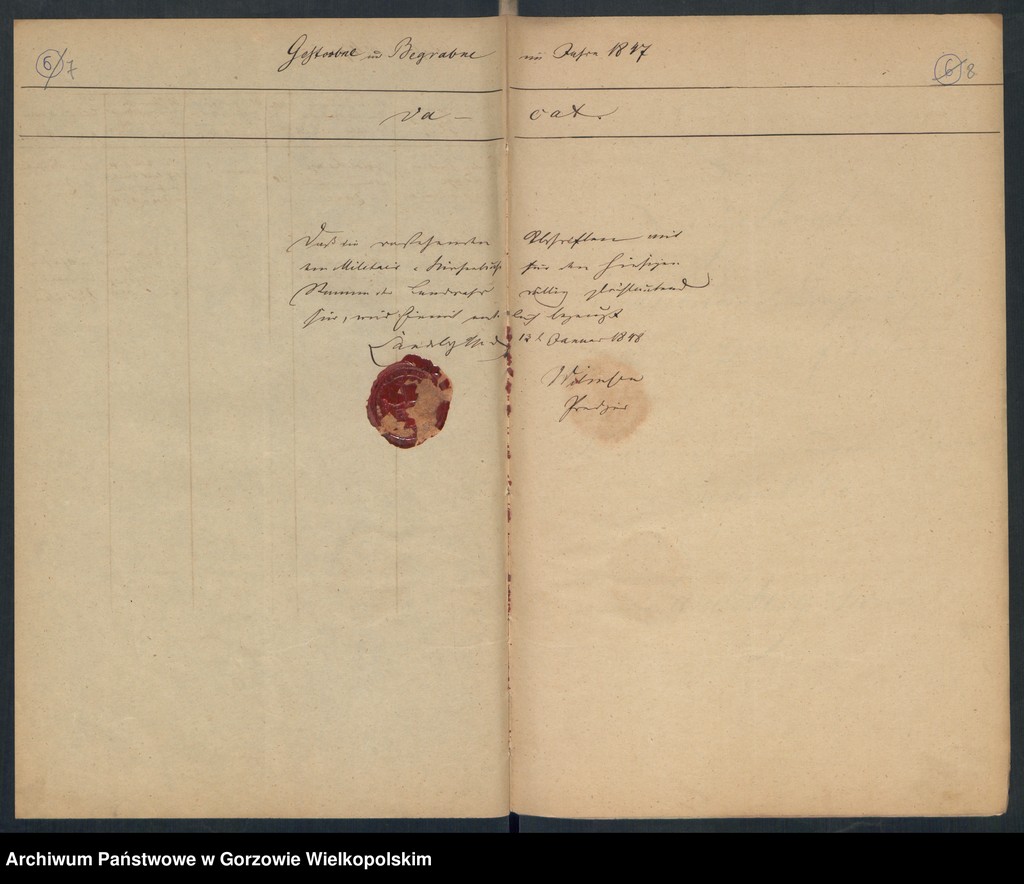 6 7
6 8
Gestorbne u Begrabne im Jahre 1847
Va – cat.
Daß die vorstehenden Abschriften mit
dem Militair-Kirchenbuche für den hiesigen
Stamm der Landwehr völlig gleichlautend
sind, wird hiermit amtlich bezeugt
Landsberg 12 Januar 1848
Prediger
Archiwum Państwowe w Gorzowie Wielkopolskim